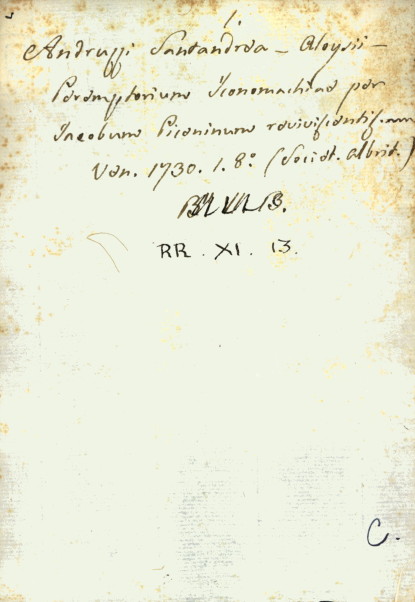 Andruzzi Santandrea - Aloysii -
Peremptorium Iconomachiae per
Jacobum Piceninum reviviscentis. 
Ven. 1730. 1. 8.° (Societ. Albrit.)
RR. XI. 13.
C.